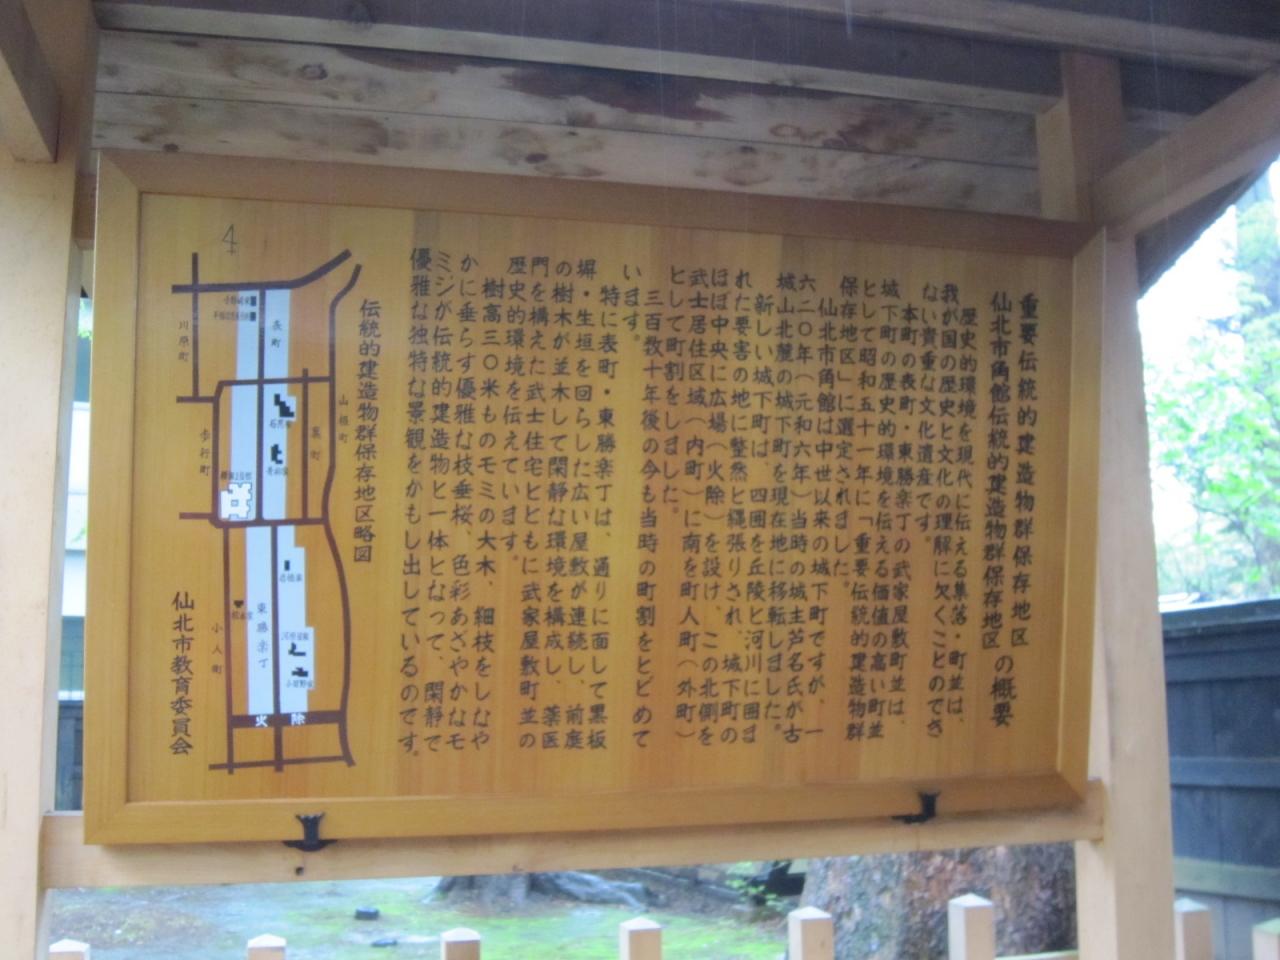 重要伝統的建造物群保存地区
仙北市角館伝統的建造物群保存地区の概要
歴史的環境を現代に伝える集落・町並は、
我が国の歴史と文化の理解に欠くことのでき
ない貴重な文化遺産です。
本町の表町・東勝楽丁の武家屋敷町並は、
城下町の歴史的環境を伝える価値の高い町並
として昭和五十一年に「重要伝統的建造物群
保存地区」に選定されました。
仙北市角館は中世以来の城下町ですが、一
六二〇年（元和六年）当時の城主芦名氏が古
城山北麓の城下町を現在地に移転しました。
新しい城下町は、四囲を丘陵と河川に囲ま
れた要害の地に整然と縄張りされ、城下町の
ほぼ中央に広場（火除）を設け、この北側を
武士居住区域（内町）に南を町人町（外町）
として町割をしました。
三百数十年後の今も当時の町割をとどめて
います。
特に表町・東勝楽丁は、通りに面して黒板
塀・生垣を回らした広い屋敷が連続し、前庭
の樹木が並木して閑静な環境を構成し、薬医
門を構えた武士住宅とともに武家屋敷町並の
歴史的環境を伝えています。
樹高三〇米ものモミの大木、細枝をしなや
かに垂らす優雅な枝垂桜、色彩あざやかなモ
ミジが伝統的建造物と一体となって、閑静で
優雅な独特な景観をかもし出しているのです。
伝統的建造物群保存地区略図
山根町
裏町
表町
石黒家
青柳家
岩橋家
河原田家
小田野家
東勝楽丁
松本家
火除
小人町
歩行町
川原町
4
仙北市教育委員会